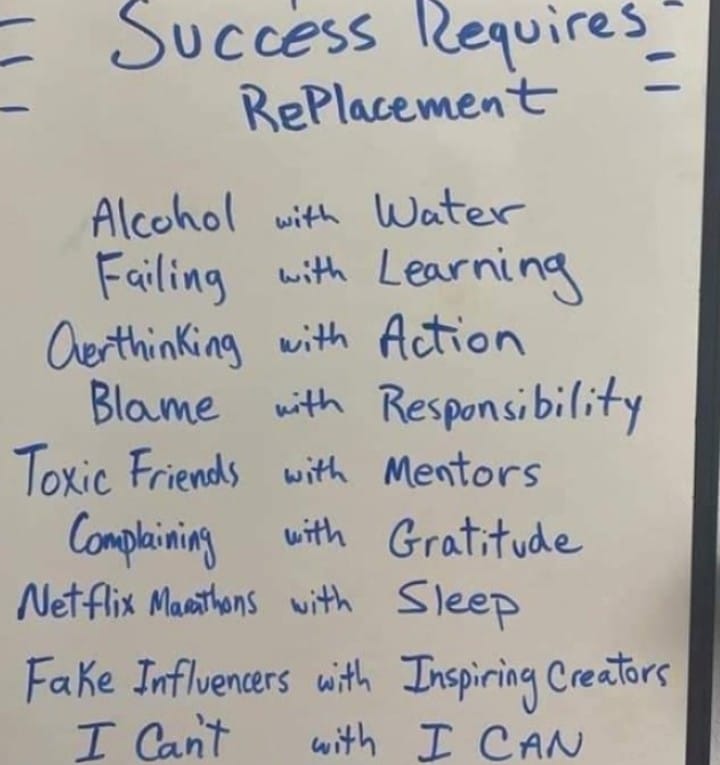 Success Requires
RePlacement
Alcohol with Water
Failing with Learning
Overthinking with Action
Blame with Responsibility
Toxic Friends with Mentors
Complaining with Gratitude
Netflix Marathons with Sleep
Fake Influencers with Inspiring Creators
I Can't with I CAN